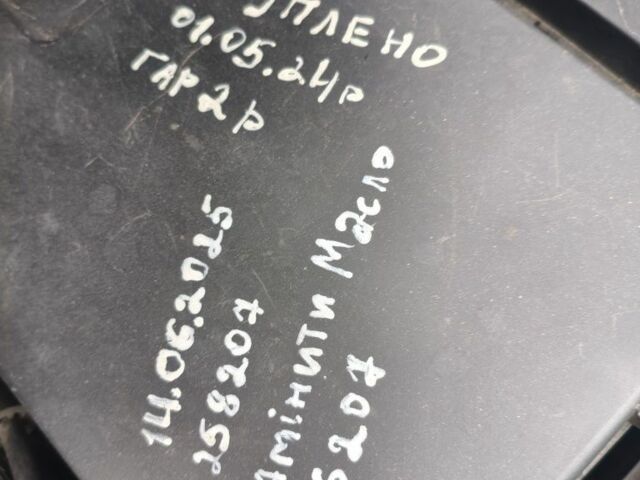 УПЛЕНО
01.05.24р
ГАР 2 р
14.06.2025
258207
мінити Масло
5207